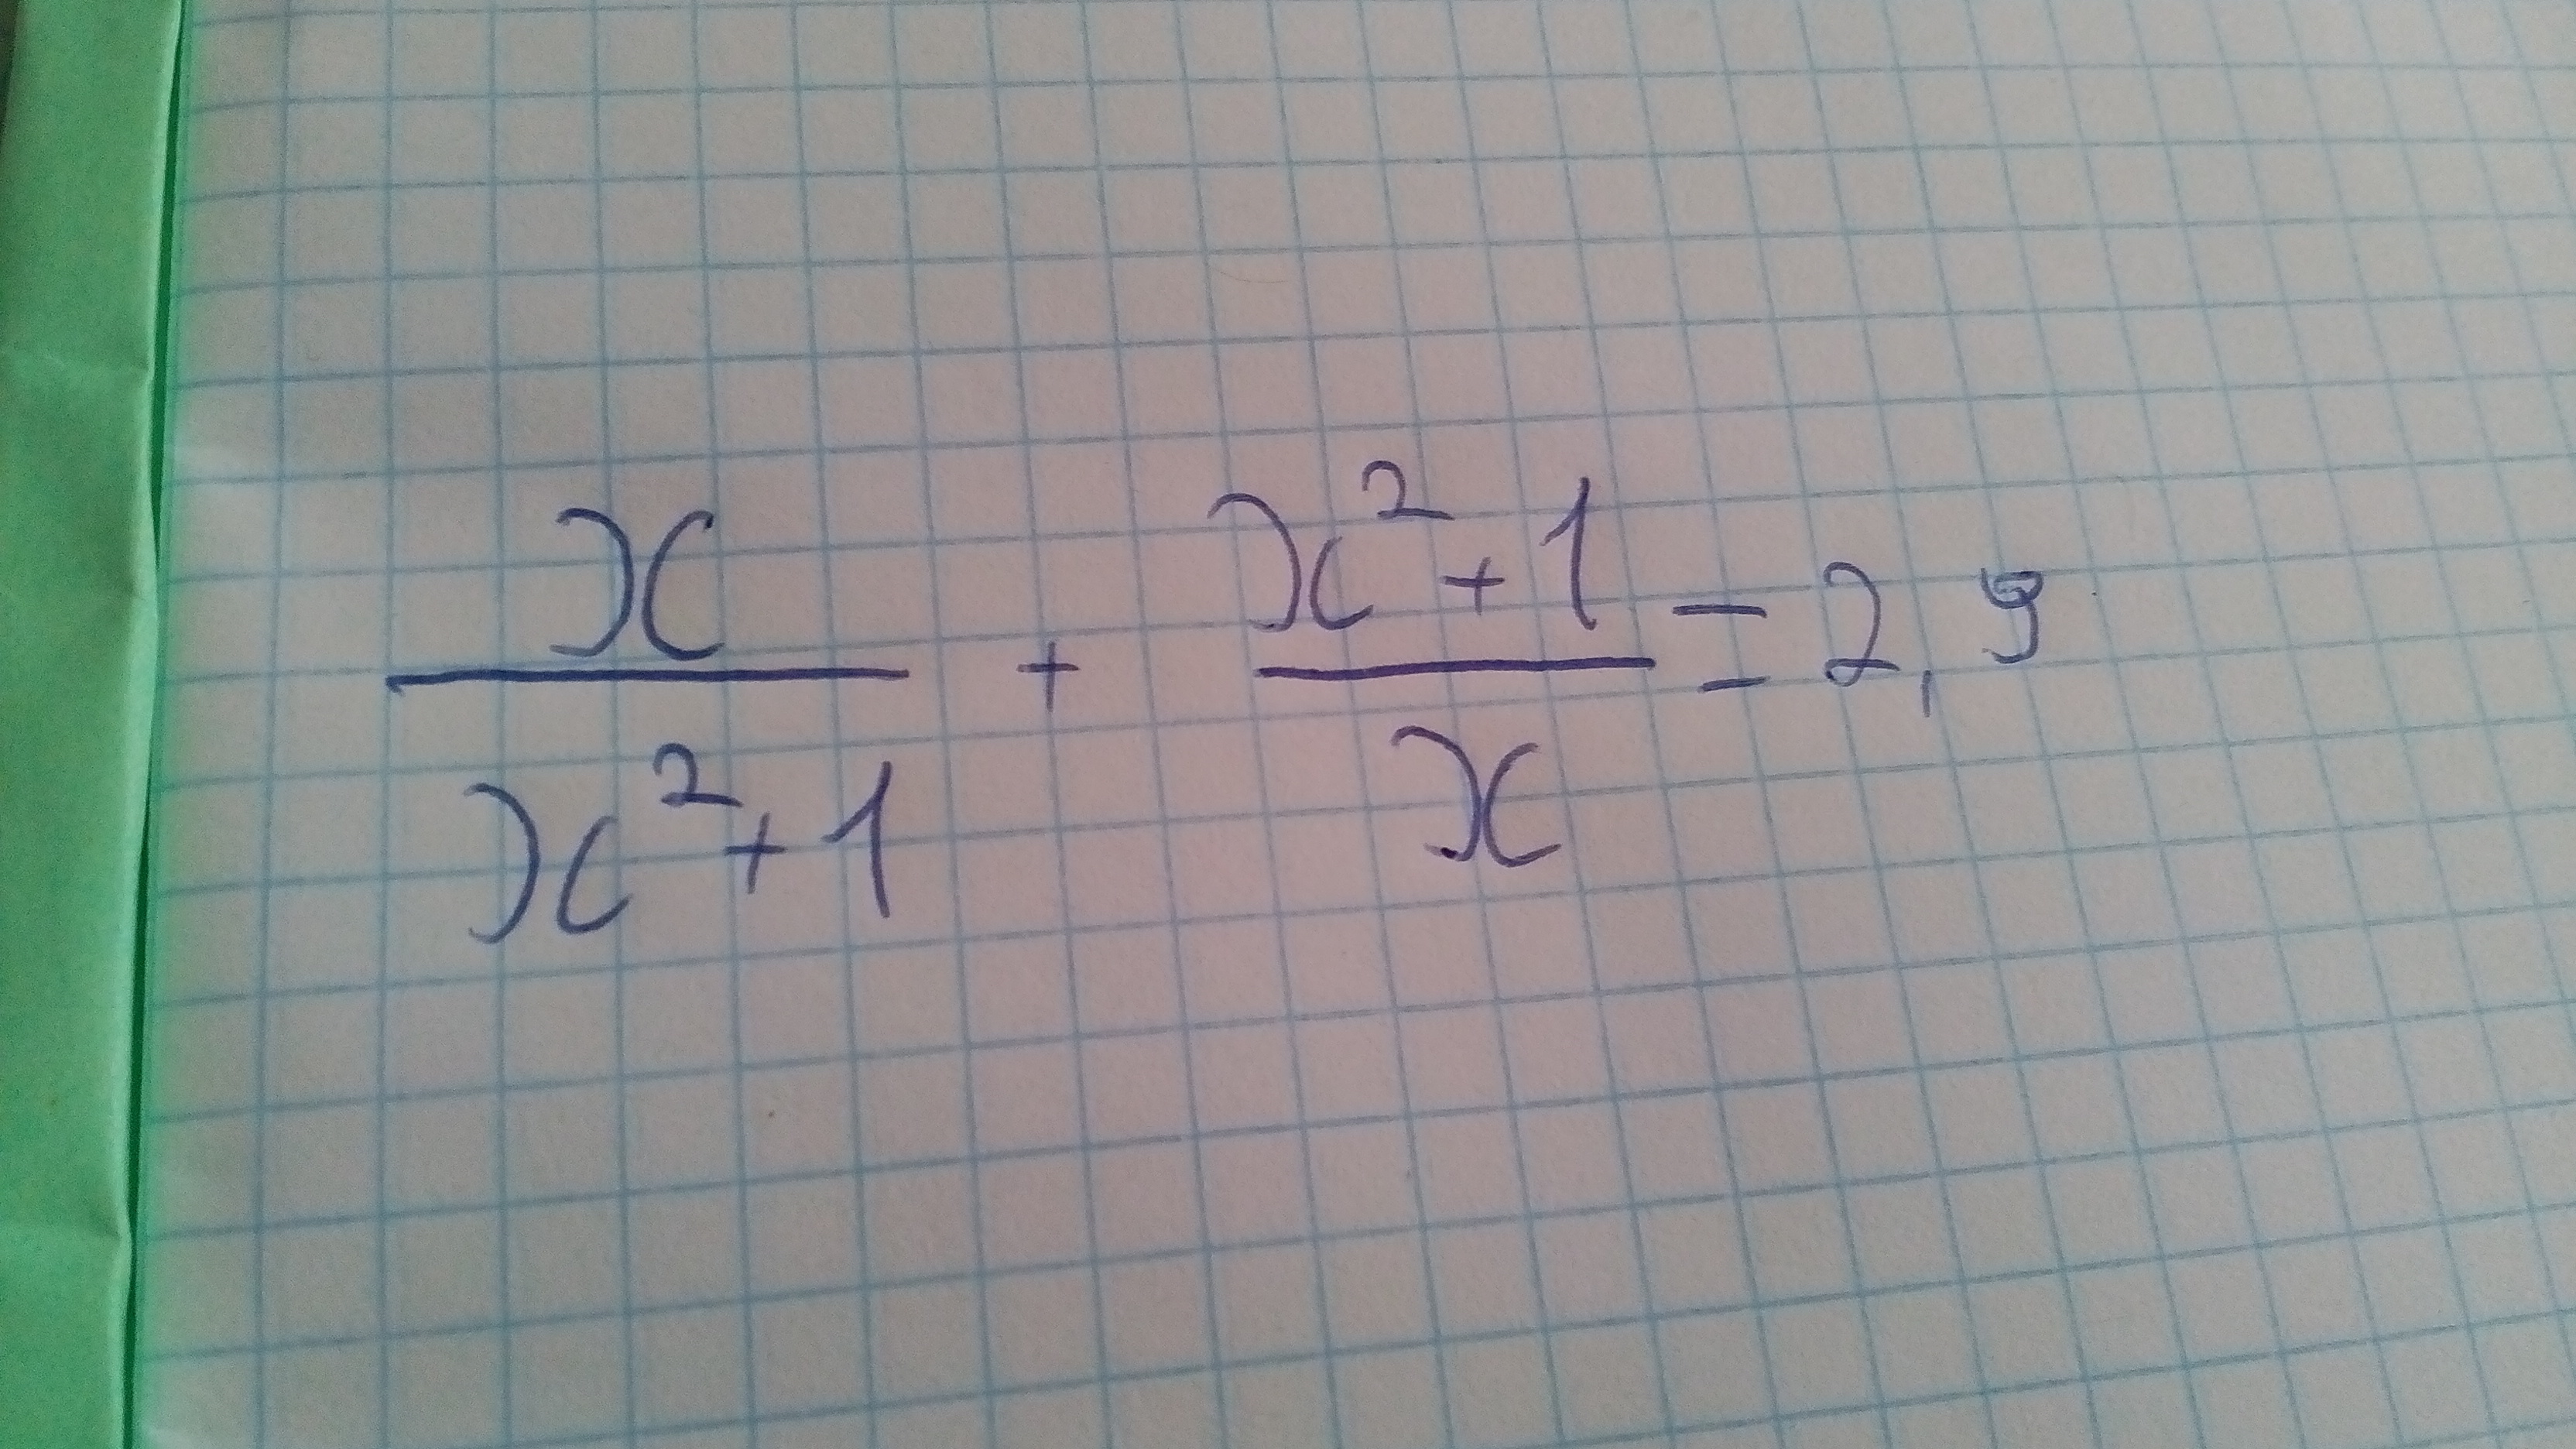 x/(x²+1) + (x²+1)/x = 2,9